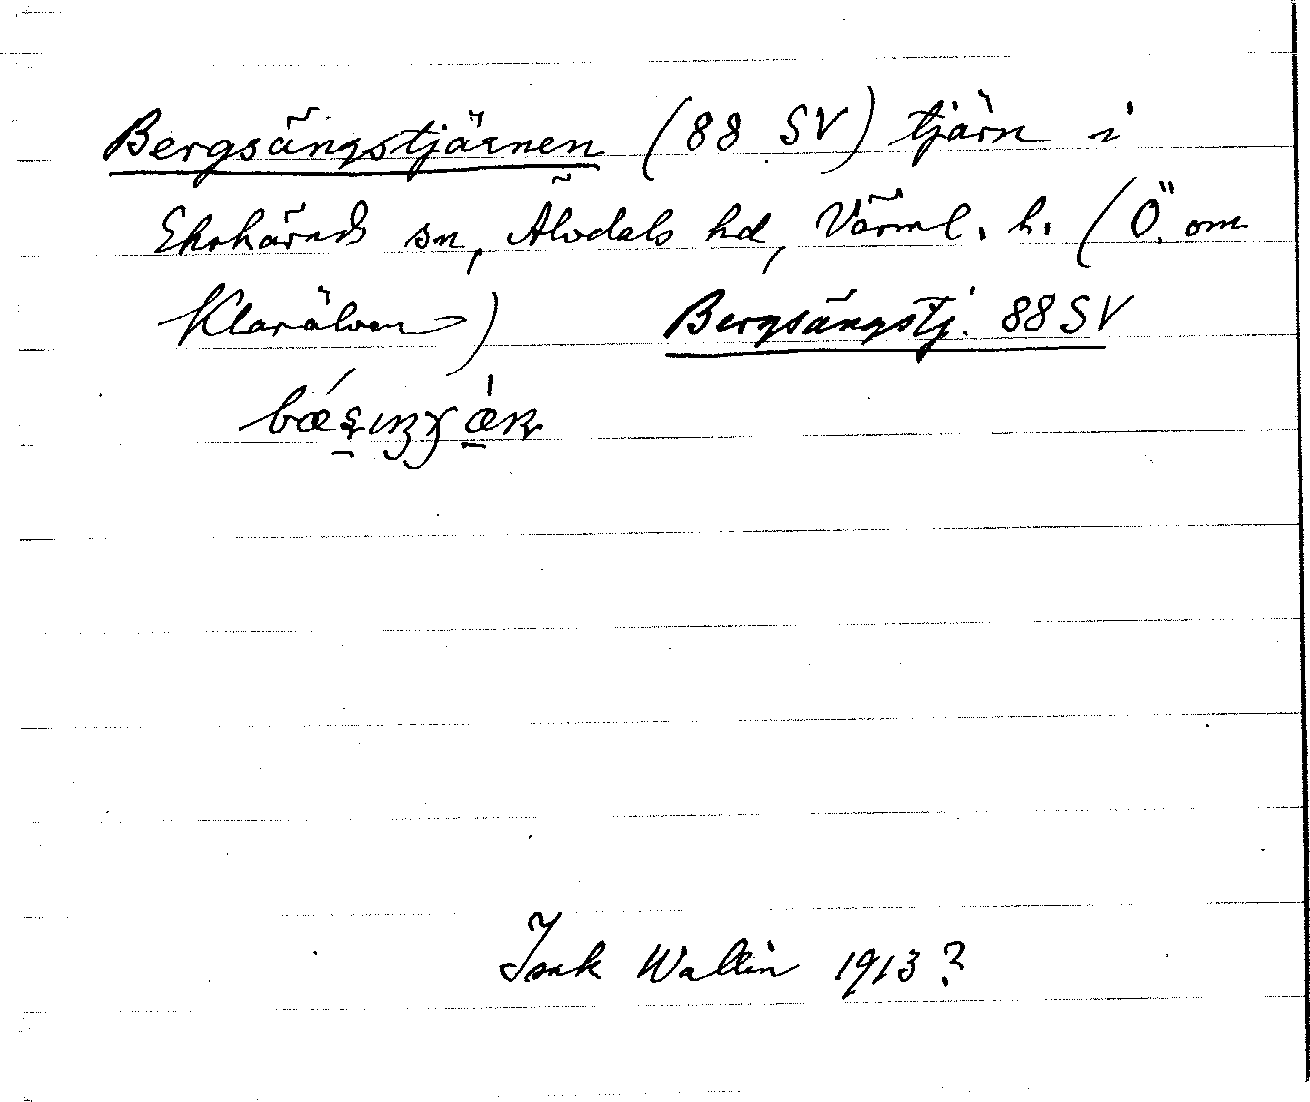 Bergsängstjärnen (88 SV) tjärn i
Ekshärads sn, Älvdals hd, Värml. h. (Ö. om
Klarälven) Bergsängstj. 88 SV
Isak Wallin 1913?